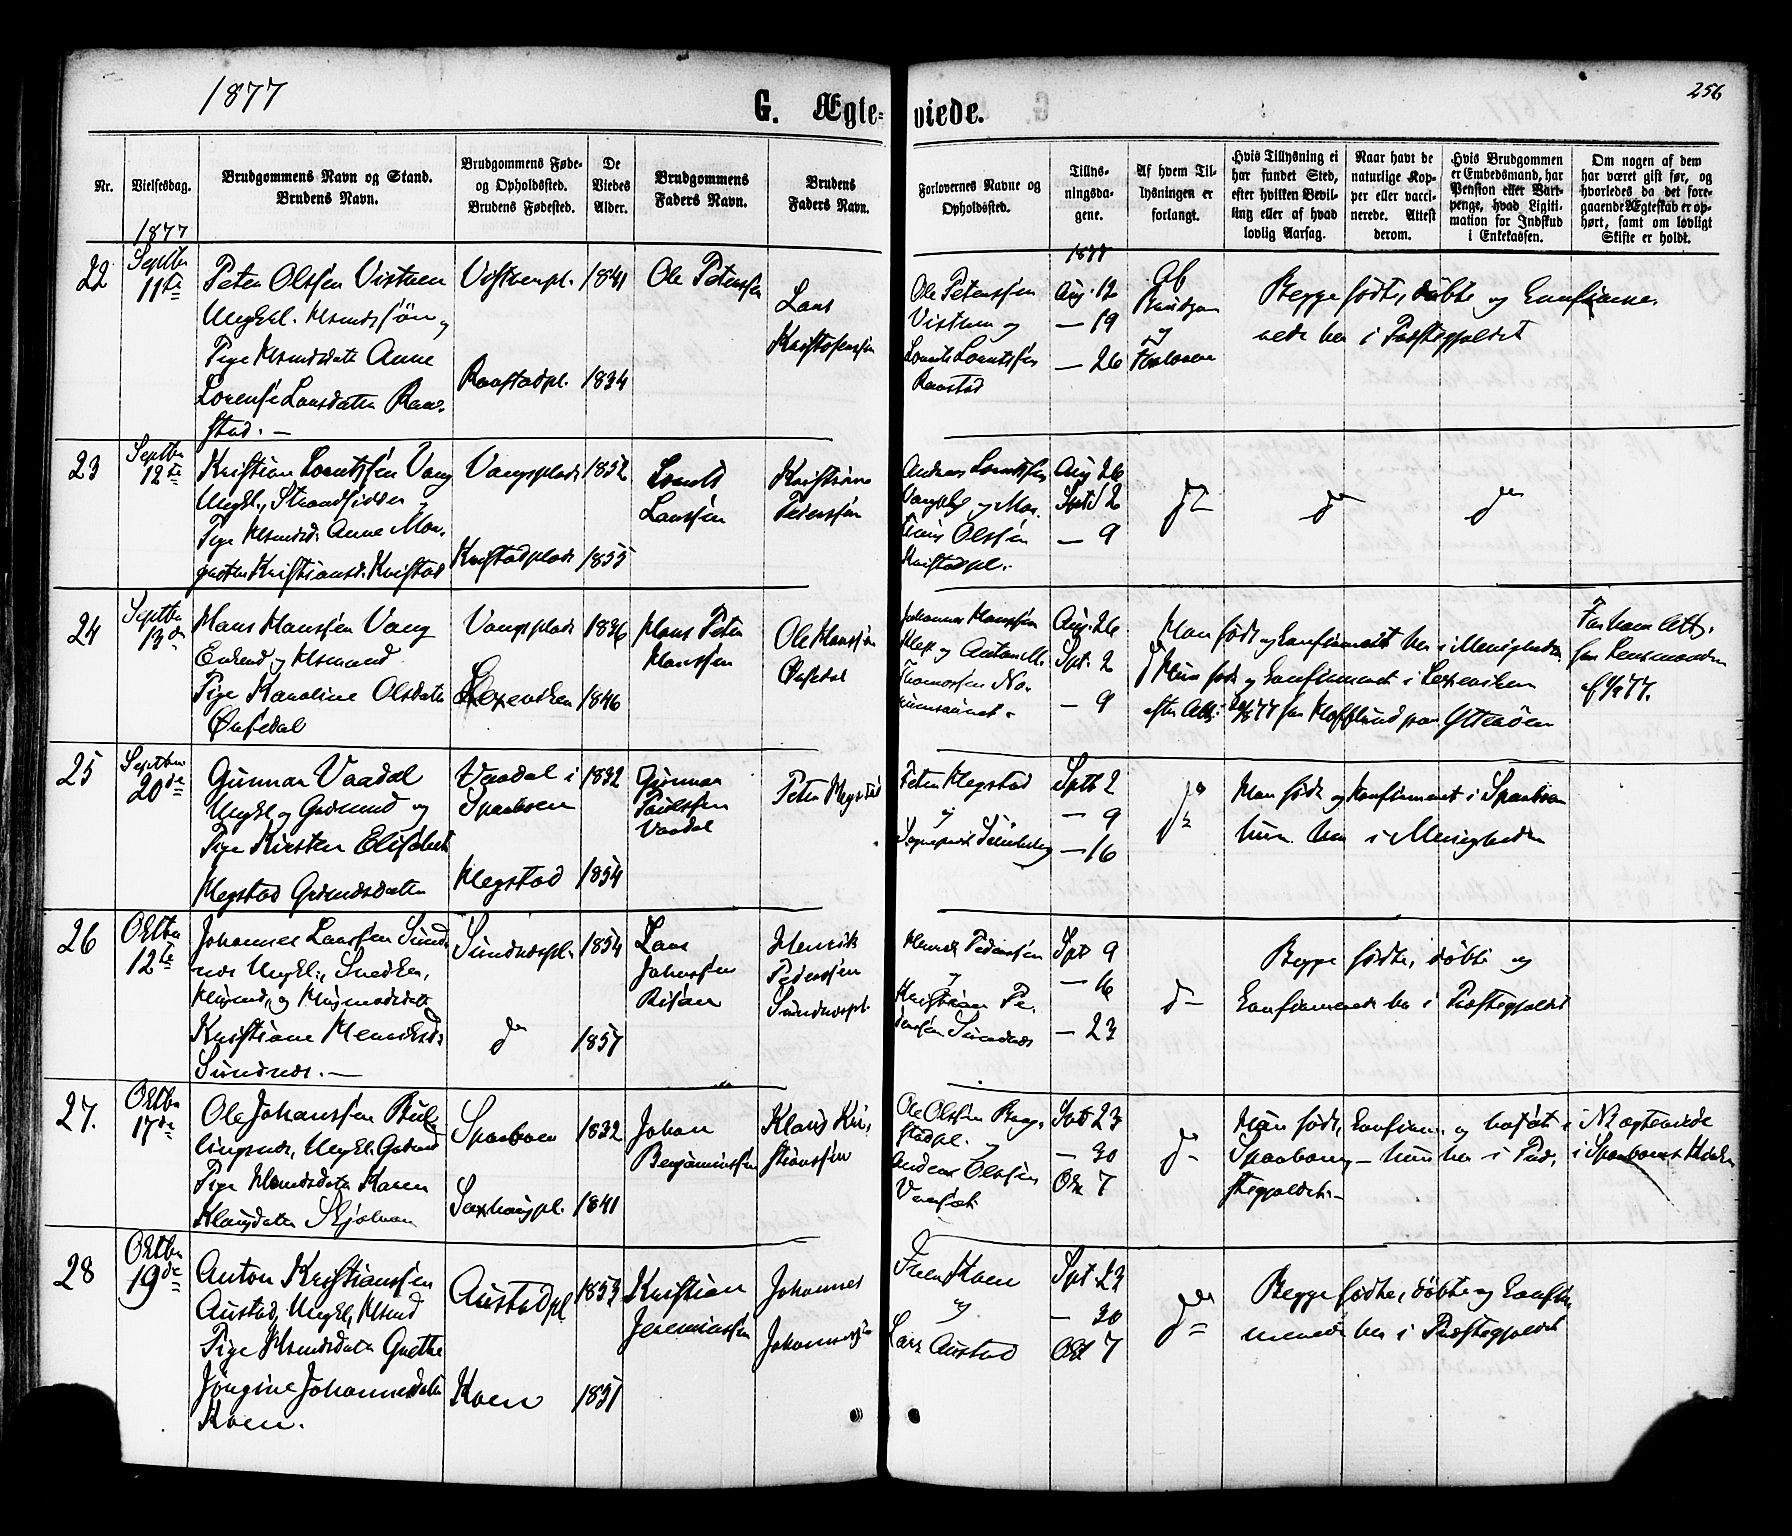 1877
G. Ægte-
viede.
256
Nr.
Vielsesdag.
Brudgommens Navn og Stand.
Brudens Navn.
Brudgommens Føde-
og Opholdsted.
Brudens Fødested.
De
Viedes
Alder.
Brudgommens
Faders Navn.
Brudens
Faders Navn.
Forlovernes Navne og
Opholdsted.
Tillys-
ningsda-
gene.
Af hvem Til-
lysningen er
forlangt.
Hvis Tillysning ei
har fundet Sted,
efter hvilken Bevil-
ling eller af hvad
lovlig Aarsag.
Naar havt de
naturlige Kop-
per eller vacci-
nerede. Attest
derom.
Hvis Brudgommen
er Embedsmand, har
Pension eller Vart-
penge, hvad Ligiti-
mation for Indskud
i Enkekassen.
Om nogen af dem
har været gift før, og
hvorledes da det fore-
gaaende Ægteskab er op-
hørt, samt om lovligt
Skifte er holdt.
1877
22
Septbr
11te
Peter Olssen Vistven
Ungkl. Hsmdssøn og
Pige Hsmdsdatr Anne
Lorense Larsdatter Raa-
stad.
Vistvenpl.
Raastadpl.
1841
1834
Ole Peterssen
Lars
Kristofersen
Ole Peterssen
Vistven og
Lorents Lorentssen
Raastad
1877
Aug. 12
— 19
— 26
Af
Brudgom
og
Forlovere
Begge fødte, døbte og Confirme-
rede her i Præstegjeldet
23
Septbr
12te
Kristian Lorentssen Vang
Ungkl., Strandsidder
Pige Hsmdsd. Anne Mar-
grethe Kristiansd. Kvistad
Vangsplads
Kvistadplads
1852
1855
Lorents
Larssen
Kristian
Pederssen
Andreas Lorentssen
Vangspl og Mar-
Olssen
Kvistadpl.
Aug 26
Sept 2
— 9
do
do
do
24
Septbr
13de
Hans Hanssen Vang
Enkemd og Hsmand
Pige Karoline Olsdatter
Øvsedal
Vangsplads
Lexeviken
1836
1846
Hans Peter
Hanssen
Ole Hanssen
Øvsedal
Johannes Hanssen
og Anton M.
Thomassen
Aug. 26
Sept. 2
— 9
do
Man født og Confirmeret her i Menigheden
Hun født og Confirmeret i Lexeviken
efter Att. 77 fra Hofflund paa Ytterøen
Fra ham Att.
fra Lensmanden
af 77.
25
Septbr
20de
Gunnar Vaadal
Ungkl og Gdmand og
Pige Kirsten Elisabet
Hegstad Gdmdsdatter
Vaadal i
Sparboen
Hegstad
1832
1854
Gunnar
Paulssen
Vaadal
Peter Hegstad
Peter Hegstad
og
Septb 2
— 9
— 16
do
Man født og Konfirmeret i Sparboen
hun her i Menigheden
26
Oktbr
12te
Johannes Larssen Sund-
næs Ungkl., Snedker,
Husmd, og Husmdsdatr
Kristiane Henriksd.
Sundnæs.
Sundnæspl.
do
1854
1857
Lars
Johnssen
Risan
Henrik
Pederssen
Sundnæspl.
Henrik Pederssen
og
Kristian Pe-
derssen Sundnæs
Sept 9
— 16
— 23
do
Begge fødte, døbte og
Confirmerede her i Præstegjeldet
27.
Oktbr
17de
Ole Johanssen
Ungkl. Gdmd
Pige Hsmdsdatr Karen
Klausdatter Skjelvan
Sparboen
Saxhaugpl.
1832
1841
Johan
Benjaminssen
Klaus Kri-
stianssen
Ole Olssen
og
Andreas Olssen
Sept 23
— 30
Okt 7
do
Man født, Confirm. og bosat i
Sparboen, — hun her i Præ-
stegjeldet.
NB ægteviede
i Sparboens Kirke
28
Oktbr
19de
Anton Kristianssen
Austad, Ungkl., Hsmd
Pige Hsmdsdatr Grethe
Jørgine Johannesdatr
Koen.
Austadpl
Koen
1853
1851
Kristian
Jeremiassen
Johannes
Johannessen
Koen
og
Lars Austad
Sept 23
— 30
Okt 7
do
Begge fødte, døbte og Confir-
merede her i Præstegjeldet